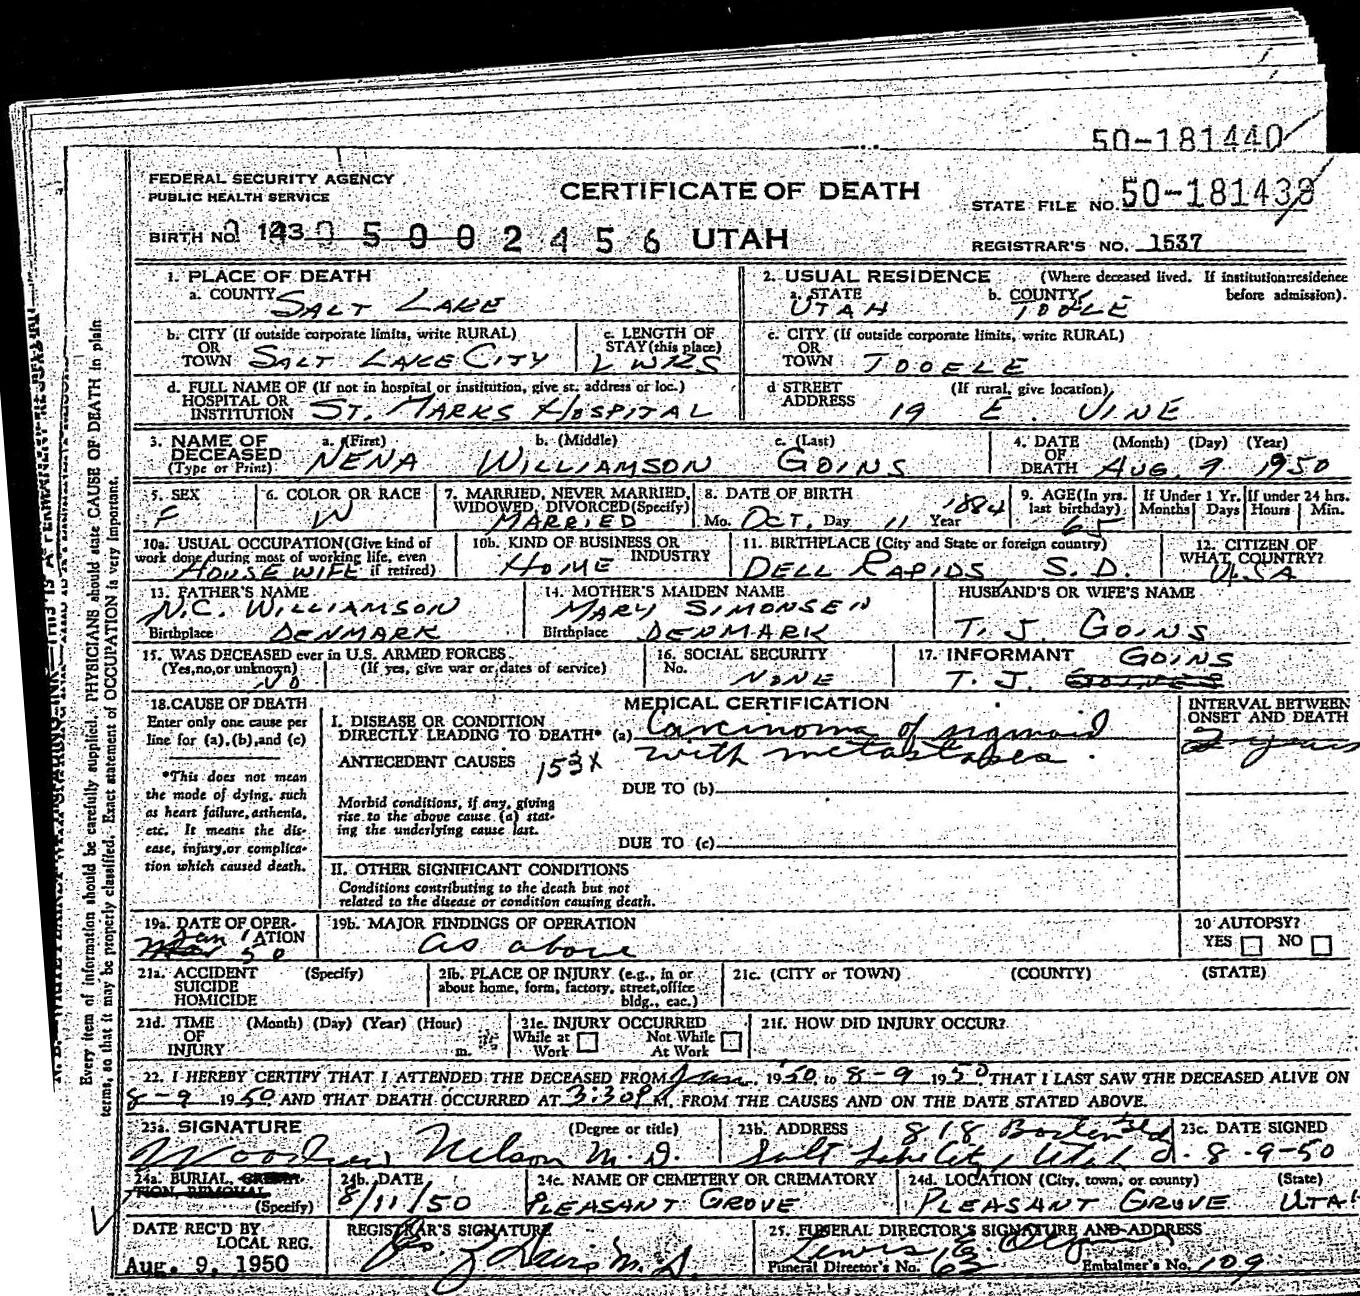 50-181440
FEDERAL SECURITY AGENCY
PUBLIC HEALTH SERVICE
CERTIFICATE OF DEATH
STATE FILE NO. 50-181438
BIRTH NO. 143 0 5 0 0 2 4 5 6 UTAH
REGISTRAR'S NO. 1537
1. PLACE OF DEATH
a. COUNTY SALT LAKE
2. USUAL RESIDENCE (Where deceased lived. If institution: residence before admission).
a. STATE UTAH b. COUNTY TOOLE
b. CITY (If outside corporate limits, write RURAL)
OR TOWN SALT LAKE CITY
c. LENGTH OF STAY (this place) WKS
c. CITY (If outside corporate limits, write RURAL)
OR TOWN TOOELE
d. FULL NAME OF (If not in hospital or institution, give st. address or loc.)
HOSPITAL OR INSTITUTION ST. MARKS HOSPITAL
d STREET ADDRESS (If rural, give location)
19 E. VINE
3. NAME OF DECEASED (Type or Print)
a. (First) NENA b. (Middle) WILLIAMSON c. (Last) GOINS
4. DATE OF DEATH (Month) (Day) (Year) AUG. 9 1950
5. SEX F
6. COLOR OR RACE W
7. MARRIED, NEVER MARRIED, WIDOWED, DIVORCED (Specify) MARRIED
8. DATE OF BIRTH Mo. OCT. Day 11 Year 1884
9. AGE (In yrs. last birthday) 65
If Under 1 Yr. Months Days
If under 24 hrs. Hours Min.
10a. USUAL OCCUPATION (Give kind of work done during most of working life, even if retired) HOUSEWIFE
10b. KIND OF BUSINESS OR INDUSTRY HOME
11. BIRTHPLACE (City and State or foreign country) DELL RAPIDS S.D.
12. CITIZEN OF WHAT COUNTRY? U.S.A
13. FATHER'S NAME N.C. WILLIAMSON
Birthplace DENMARK
14. MOTHER'S MAIDEN NAME MARY SIMONSEN
Birthplace DENMARK
HUSBAND'S OR WIFE'S NAME
T. J. GOINS
15. WAS DECEASED ever in U.S. ARMED FORCES.
(Yes, no, or unknown) (If yes, give war or dates of service)
NO
16. SOCIAL SECURITY No. NONE
17. INFORMANT GOINS
T. J.
18. CAUSE OF DEATH
Enter only one cause per line for (a), (b), and (c)
*This does not mean the mode of dying, such as heart failure, asthenia, etc. It means the disease, injury, or complication which caused death.
MEDICAL CERTIFICATION
I. DISEASE OR CONDITION DIRECTLY LEADING TO DEATH* (a) Carcinoma of sigmoid
with metastases.
ANTECEDENT CAUSES 153X
Morbid conditions, if any, giving rise to the above cause (a) stating the underlying cause last.
DUE TO (b)
DUE TO (c)
INTERVAL BETWEEN ONSET AND DEATH
2 years
II. OTHER SIGNIFICANT CONDITIONS
Conditions contributing to the death but not related to the disease or condition causing death.
19a. DATE OF OPERATION Jan 50
19b. MAJOR FINDINGS OF OPERATION
as above
20 AUTOPSY?
YES NO
21a. ACCIDENT SUICIDE HOMICIDE (Specify)
21b. PLACE OF INJURY (e.g., in or about home, form, factory, street, office bldg., eac.)
21c. (CITY or TOWN) (COUNTY) (STATE)
21d. TIME OF INJURY (Month) (Day) (Year) (Hour) m.
21e. INJURY OCCURRED
While at Work Not While At Work
21f. HOW DID INJURY OCCUR?
22. I HEREBY CERTIFY THAT I ATTENDED THE DECEASED FROM Jan. 1950, to 8-9 1950, THAT I LAST SAW THE DECEASED ALIVE ON
8-9 1950 AND THAT DEATH OCCURRED AT 3:30P M. FROM THE CAUSES AND ON THE DATE STATED ABOVE.
23a. SIGNATURE (Degree or title)
Woodrow Nelson M.D.
23b. ADDRESS 818 Boston Bldg
Salt Lake City, Utah
23c. DATE SIGNED
8-9-50
24a. BURIAL, CREMATION, REMOVAL (Specify)
24b. DATE
8/11/50
24c. NAME OF CEMETERY OR CREMATORY
PLEASANT GROVE
24d. LOCATION (City, town, or county) (State)
PLEASANT GROVE UTAH
DATE REC'D BY LOCAL REG.
Aug. 9, 1950
REGISTRAR'S SIGNATURE
Davis M.D.
25. FUNERAL DIRECTOR'S SIGNATURE AND ADDRESS
Funeral Director's No. 62 Embalmer's No. 109
Every item of information should be carefully supplied. PHYSICIANS should state CAUSE OF DEATH in plain
terms, so that it may be properly classified. Exact statement of OCCUPATION is very important.